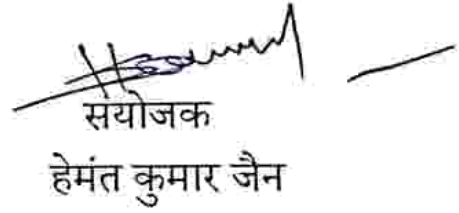 संयोजक
हेमंत कुमार जैन